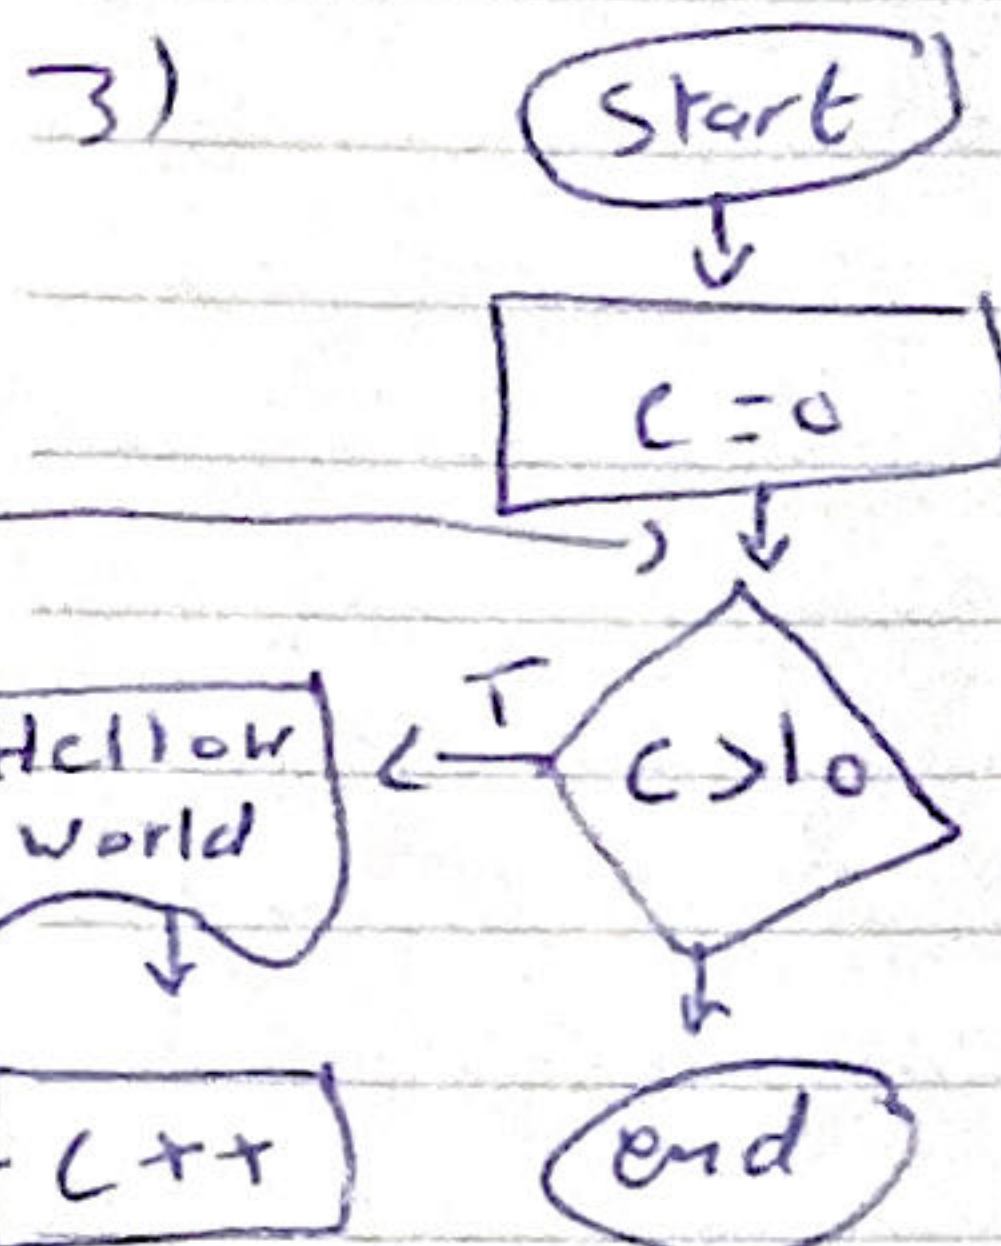 3)
Start
C = 0
T
C > 10
Hellow
world
C ++
end